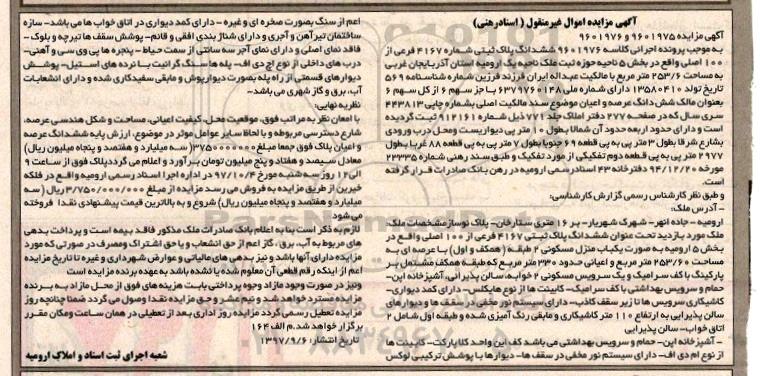 آگهی مزایده اموال غیرمنقول (اسنادرهنی)
آگهی مزایده ۹۶۰۱۹۷۵ و ۹۶۰۱۹۷۶
به موجب پرونده اجرائی کلاسه ۹۶۰۱۹۷۶ ششدانگ پلاک ثبتی شماره ۴۱۶۷ فرعی از
۱۰۰ اصلی واقع در بخش ۵ ناحیه حوزه ثبت ملک ناحیه یک ارومیه استان آذربایجان غربی
به مساحت ۲۵۳/۶ متر مربع با مالکیت عبداله ایران فرزند فرزین شماره شناسنامه ۵۶۹
تاریخ تولد ۱۳۵۸۰۴۱۰ دارای شماره ملی ۶۳۷۹۷۶۰۱۴۸ با جز سهم ۶ از کل سهم ۶
بعنوان مالک شش دانگ عرصه و اعیان موضوع سند مالکیت اصلی بشماره چاپی ۴۴۳۸۱۳
سری سال که در صفحه ۲۷۷ دفتر املاک جلد ۷۷۱ ذیل شماره ۹۱۲۱۶۱ ثبت گردیده
است و دارای حدود اربعه حدود آن شمالا بطول ۱۰ متر پی دیواریست ومحل درب ورودی
بشارع شرقا بطول ۳ متر پی به پی قطعه ۶۹ جنوبا بطول ۷ متر پی به پی قطعه ۸۸ غربا بطول
۲۹۷۷ متر پی به پی قطعه دوم تفکیکی از مورد تفکیک و طبق سند رهنی شماره ۲۳۳۳۵
مورخه ۹۴/۱۲/۲۰ دفترخانه ۴۳ اسنادرسمی ارومیه در رهن بانک صادرات قرار گرفته
است.
و طبق نظر کارشناس رسمی گزارش کارشناسی:
- آدرس ملک:
ارومیه- جاده انهر- شهرک شهریار- بر ۱۶ متری ستارخان- پلاک نوساز مشخصات ملک
ملک مورد بازدید تحت عنوان ششدانگ پلاک ثبتی ۴۱۶۷ فرعی از ۱۰۰ اصلی واقع در
بخش ۵ ارومیه به صورت یکباب منزل مسکونی ۲ طبقه (همکف و اول) با عرصه ای به
مساحت ۲۵۳/۶۰ متر مربع و اعیانی حدود ۳۳۰ متر مربع که طبقه همکف مشتمل بر
پارکینگ با کف سرامیک و یک سرویس مسکونی ۲ خوابه، سالن پذیرائی، آشپزخانه اپن-
حمام و سرویس بهداشتی با کف سرامیک- کابینت ها از نوع هایگلس- دارای کمد دیواری-
کاشیکاری سرویس ها تا زیر سقف کاذب- دارای سیستم نور مخفی در سقف ها و دیوارهای
سالن پذیرایی به ارتفاع ۱۱۰ متر کاشیکاری و مابقی رنگ آمیزی شده و طبقه اول شامل ۲
اتاق خواب- سالن پذیرایی
- آشپزخانه اپن- حمام و سرویس بهداشتی می باشد کف این واحد کلا پارکت- کابینت ها
از نوع ام دی اف- دارای سیستم نور مخفی در سقف ها- دیوارها با پوشش ترکیبی لوکس
اعم از سنگ بصورت صخره ای و غیره - دارای کمد دیواری در اتاق خواب ها می باشد- سازه
ساختمان تیرآهن و آجری و دارای شناژ بندی افقی و قائم- پوشش سقف ها تیرچه و بلوک-
فاقد نمای اصلی و دارای نمای آجر سه سانتی از سمت حیاط - پنجره ها پی وی سی و آهنی-
درب های داخلی از نوع اچ دی اف- پله ها سنگ گرانیت با نرده های استیل- پوشش
دیوارهای قسمتی از راه پله بصورت دیوارپوش و مابقی سفیدکاری شده و دارای انشعابات
آب، برق و گاز شهری می باشد-
نظریه نهایی:
با امعان نظر به مراتب فوق، موقعیت محل، کیفیت اعیانی، مساحت و شکل هندسی عرصه،
شارع دسترسی مربوطه و با لحاظ سایر عوامل موثر در موضوع، ارزش پایه ششدانگ عرصه
و اعیان پلاک فوق جمعا مبلغ ۳۷۵۰۰۰۰۰۰۰(سه میلیارد و هفتصد و پنجاه میلیون ریال)
معادل سیصد و هفتاد و پنج میلیون تومان برآورد و اعلام می گردد پلاک فوق از ساعت ۹
الی ۱۲ روز سه شنبه مورخ ۹۷/۱۰/۴ در اداره اجرا اسناد رسمی ارومیه واقع در فلکه
خیبرین از طریق مزایده به فروش می رسد مزایده از مبلغ ۳/۷۵۰/۰۰۰/۰۰۰ ریال (سه
میلیارد و هفتصد و پنجاه میلیون ریال) شروع و به بالاترین قیمت پیشنهادی نقدا فروخته
می شود
لازم به ذکر است بنا به اعلام بانک صادرات ملک مذکور فاقد بیمه است و پرداخت بدهی
های مربوط به آب، برق، گاز اعم از حق انشعاب و یا حق اشتراک ومصرف در صورتی که مورد
مزایده دارای آنها باشد و نیز بدهی های مالیاتی و عوارض شهرداری و غیره تا تاریخ مزایده
اعم از اینکه رقم قطعی آن معلوم شده یا نشده باشد به عهده برنده مزایده است
ونیز در صورت وجود مازاد وجوه پرداختی بابت هزینه های فوق از محل مازاد به برنده
مزایده مسترد خواهد شد و نیم عشر و حق مزایده نقدا وصول می گردد ضمنا چنانچه روز
مزایده تعطیل رسمی گردد مزایده روز اداری بعد از تعطیلی در همان ساعت ومکان مقرر
برگزار خواهد شد. م الف ۱۶۴
تاریخ انتشار: ۱۳۹۷/۹/۶
شعبه اجرای ثبت اسناد و املاک ارومیه